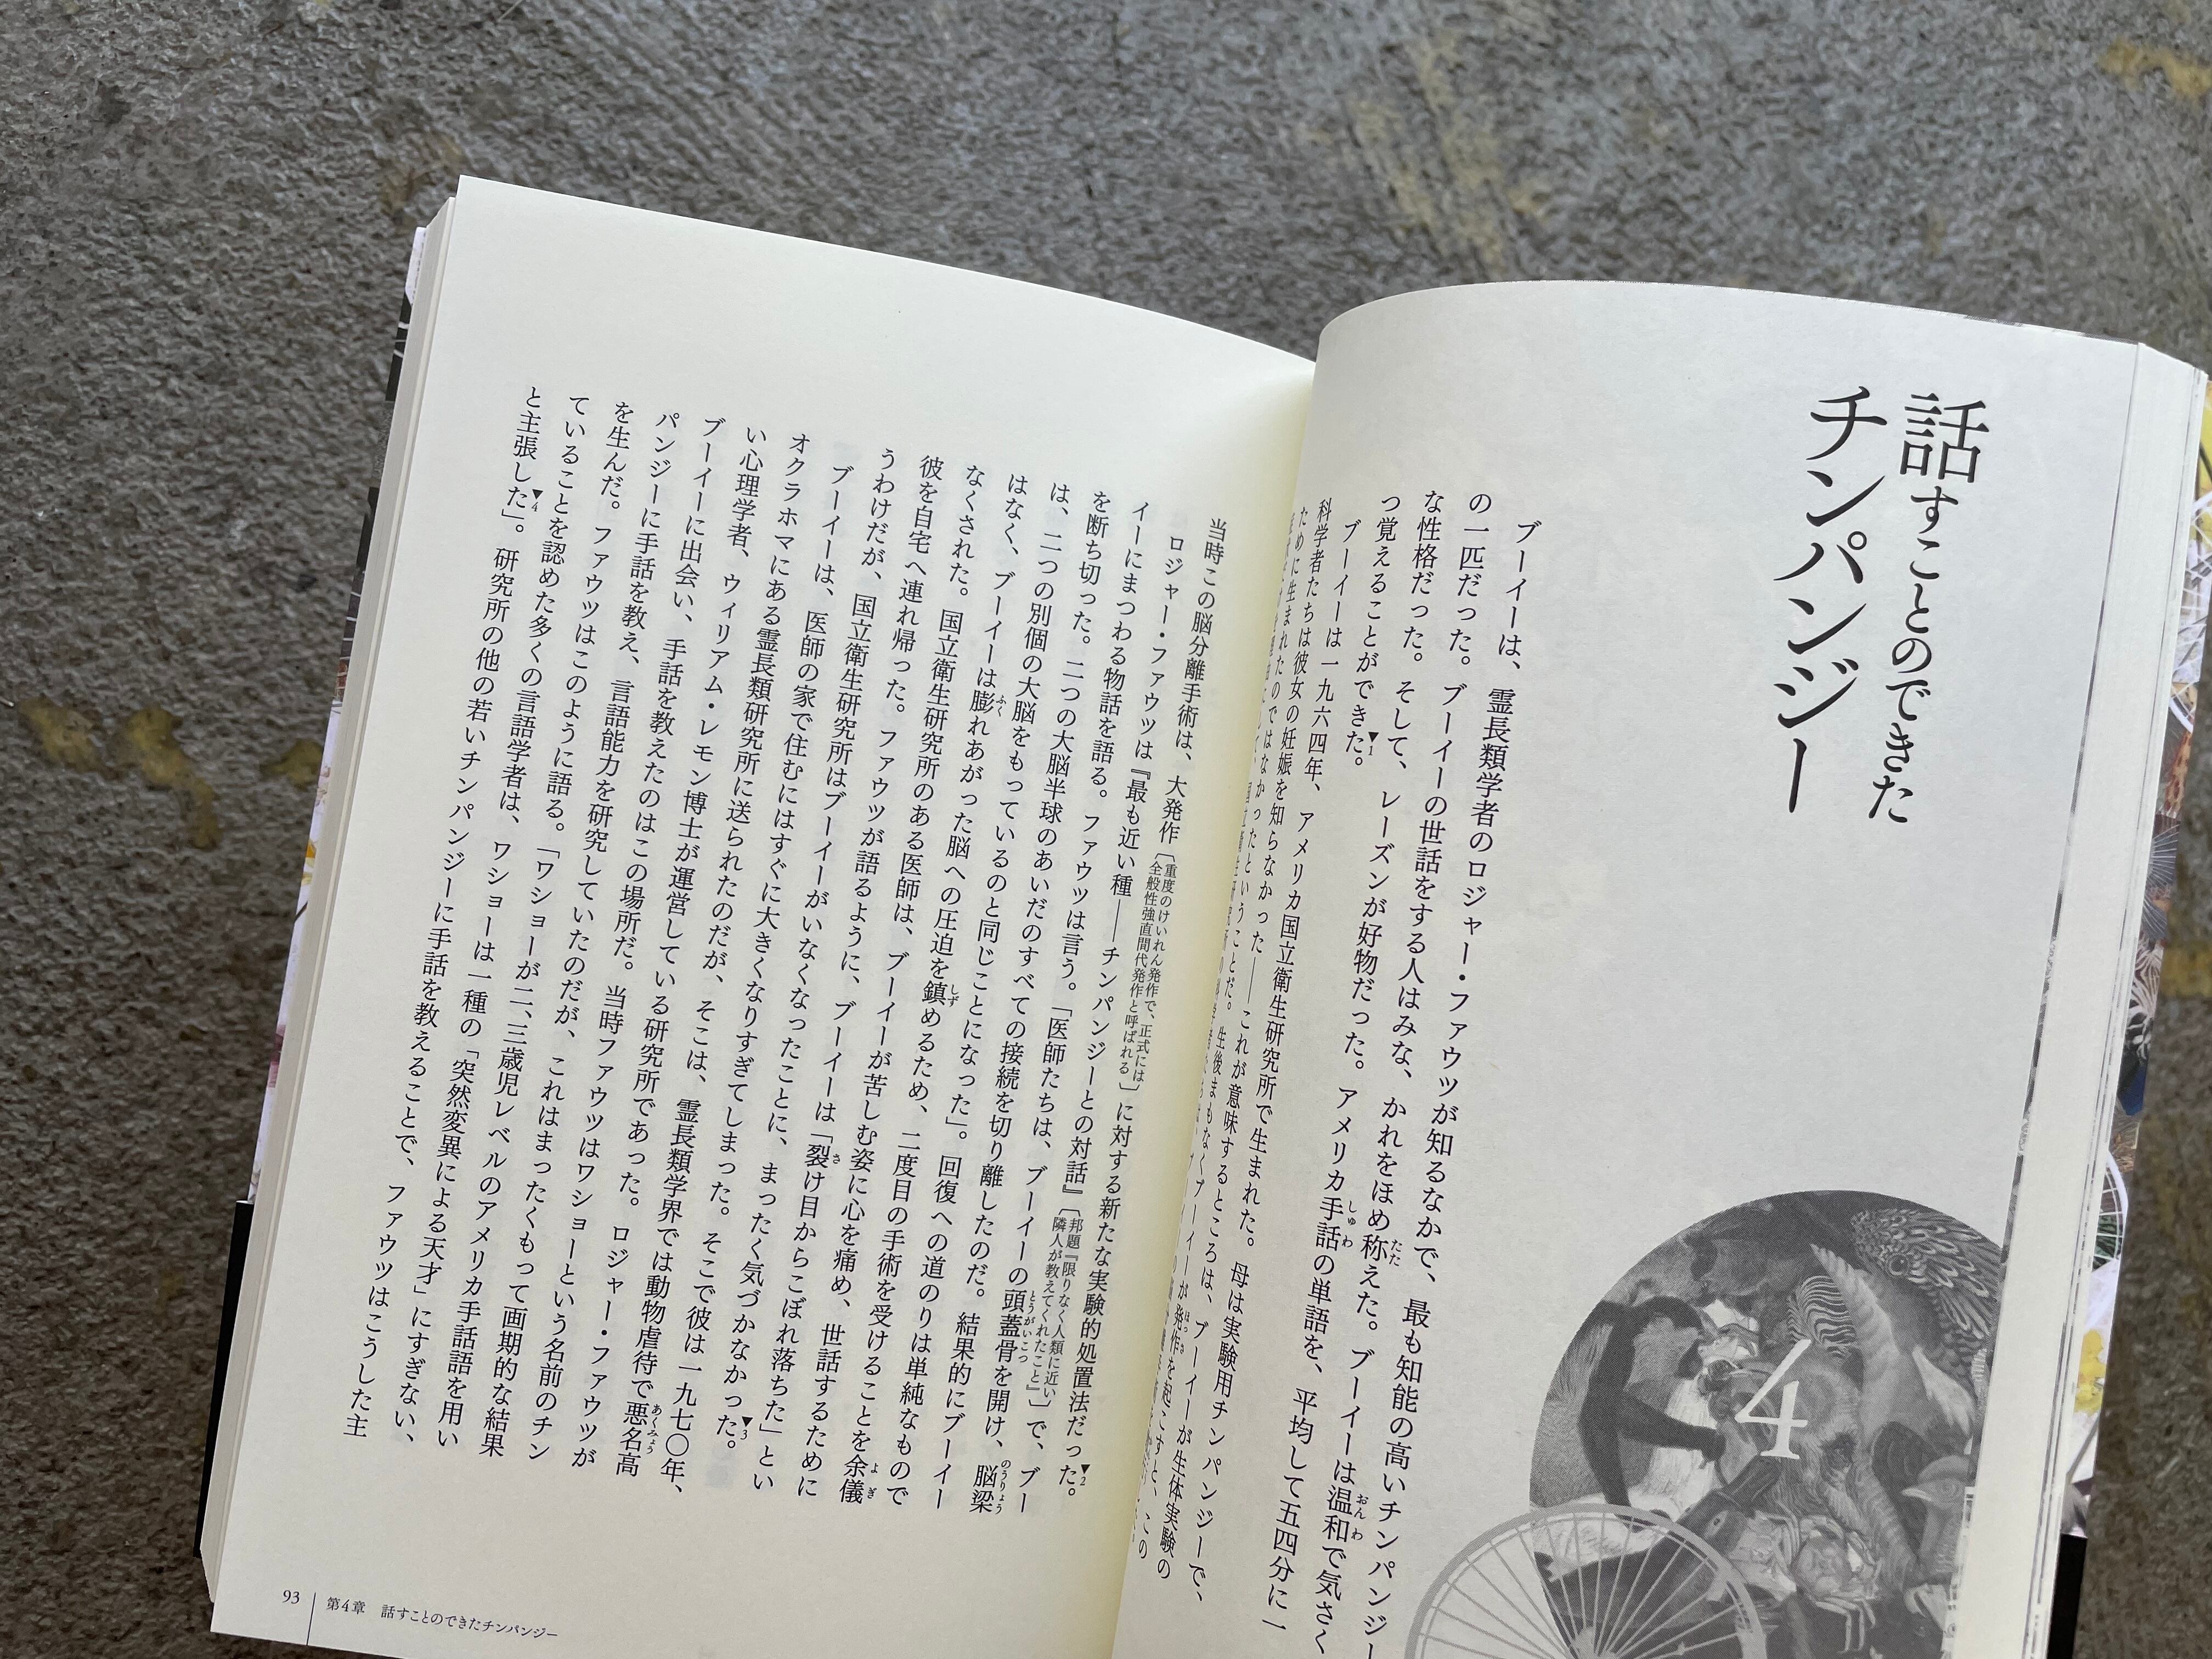 話すことのできた
チンパンジー
4
ブーイーは、霊長類学者のロジャー・ファウツが知るなかで、最も知能の高いチンパンジー
の一匹だった。ブーイーの世話をする人はみな、かれをほめ称えた。ブーイーは温和で気さく
な性格だった。そして、レーズンが好物だった。アメリカ手話の単語を、平均して五四分に一
つ覚えることができた。▼1
ブーイーは一九六四年、アメリカ国立衛生研究所で生まれた。母は実験用チンパンジーで、
科学者たちは彼女の妊娠を知らなかった――これが意味するところは、ブーイーが生体実験の
ために生まれたのではなかったということだ。生後まもなくブーイーが発作を起こすと、この
当時この脳分離手術は、大発作〔重度のけいれん発作で、正式には全般性強直間代発作と呼ばれる〕に対する新たな実験的処置法だった。▼2
ロジャー・ファウツは『最も近い種――チンパンジーとの対話』〔邦題『限りなく人類に近い隣人が教えてくれたこと』〕で、ブー
イーにまつわる物語を語る。ファウツは言う。「医師たちは、ブーイーの頭蓋骨を開け、脳梁
を断ち切った。二つの大脳半球のあいだのすべての接続を切り離したのだ。結果的にブーイー
は、二つの別個の大脳をもっているのと同じことになった」。回復への道のりは単純なもので
はなく、ブーイーは膨れあがった脳への圧迫を鎮めるため、二度目の手術を受けることを余儀
なくされた。国立衛生研究所のある医師は、ブーイーが苦しむ姿に心を痛め、世話するために
彼を自宅へ連れ帰った。ファウツが語るように、ブーイーは「裂け目からこぼれ落ちた」とい
うわけだが、国立衛生研究所はブーイーがいなくなったことに、まったく気づかなかった。▼3
ブーイーは、医師の家で住むにはすぐに大きくなりすぎてしまった。そこで彼は一九七〇年、
オクラホマにある霊長類研究所に送られたのだが、そこは、霊長類学界では動物虐待で悪名高
い心理学者、ウィリアム・レモン博士が運営している研究所であった。ロジャー・ファウツが
ブーイーに出会い、手話を教えたのはこの場所だ。当時ファウツはワショーという名前のチン
パンジーに手話を教え、言語能力を研究していたのだが、これはまったくもって画期的な結果
を生んだ。ファウツはこのように語る。「ワショーが二、三歳児レベルのアメリカ手話語を用い
ていることを認めた多くの言語学者は、ワショーは一種の「突然変異による天才」にすぎない、
と主張した」。▼4 研究所の他の若いチンパンジーに手話を教えることで、ファウツはこうした主
93 第4章 話すことのできたチンパンジー